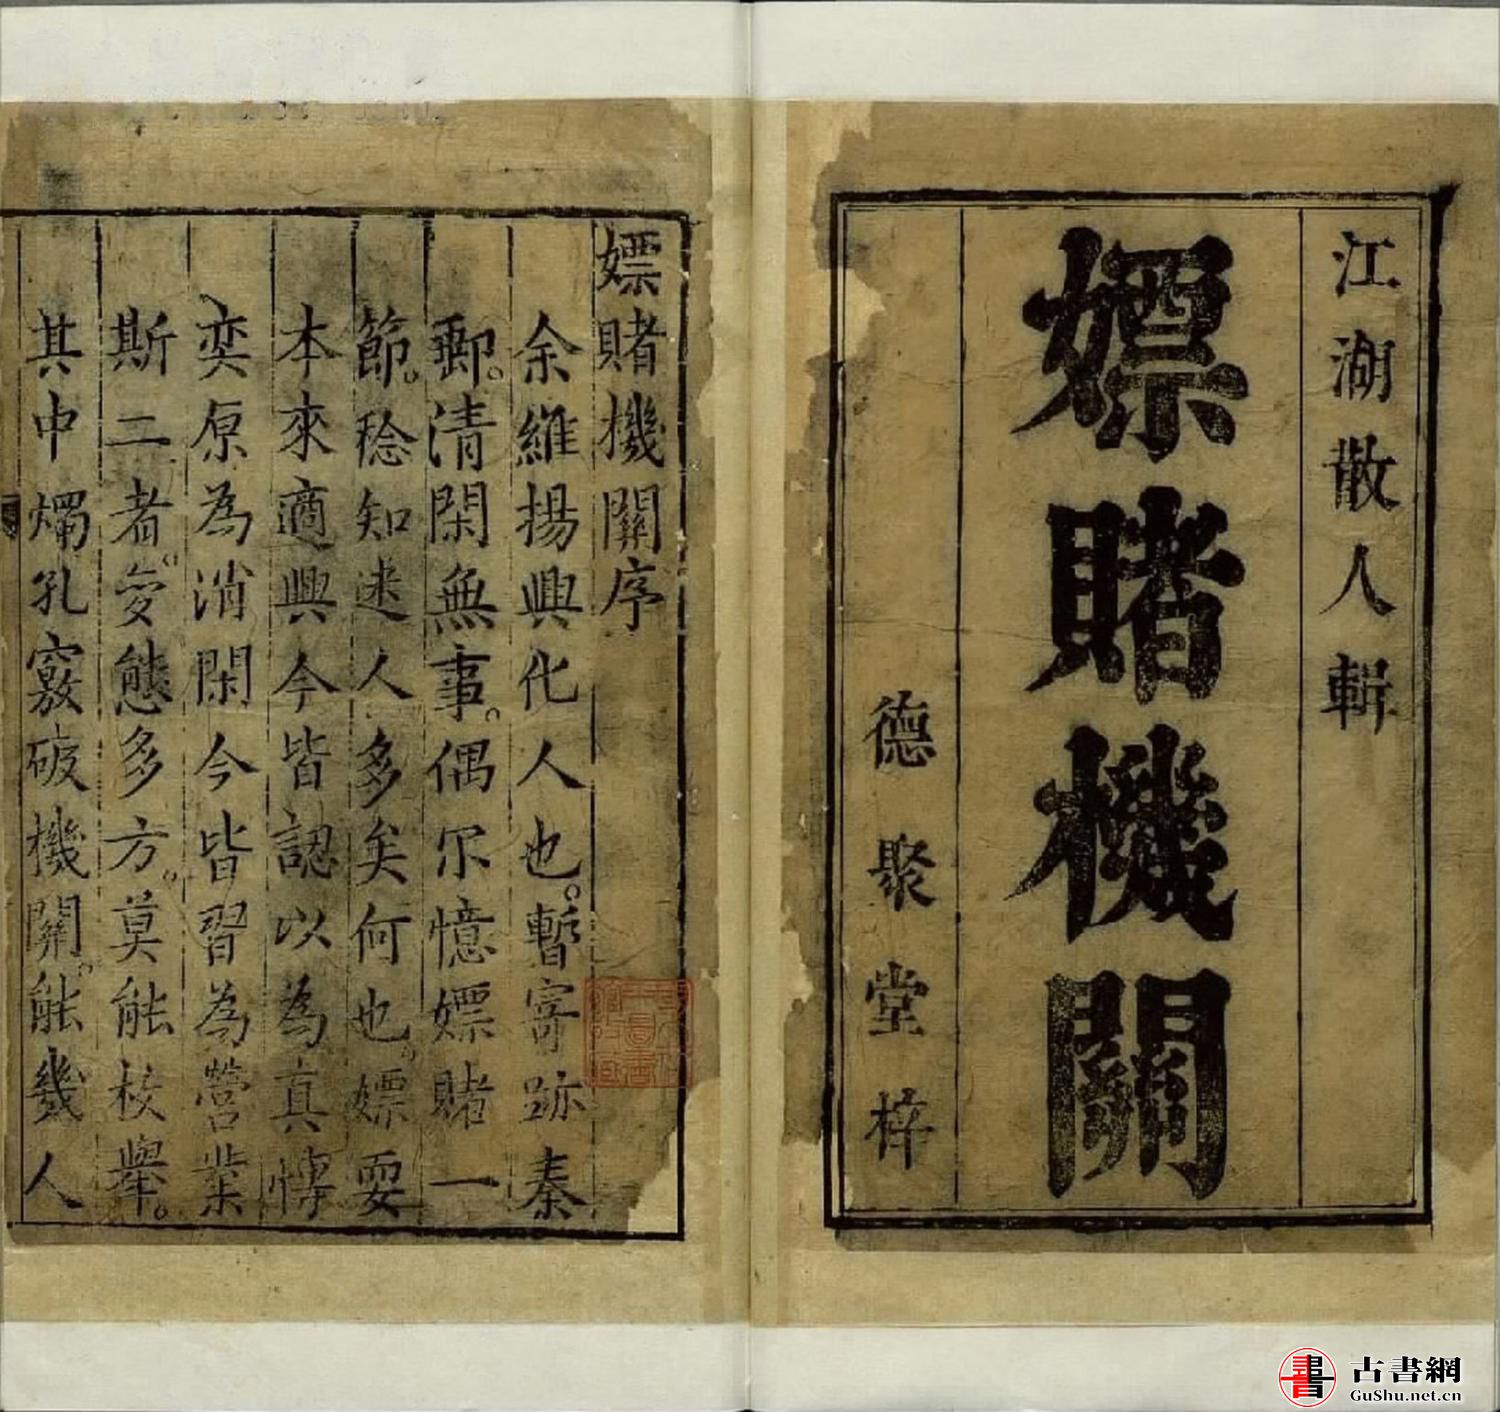 江湖散人輯
嫖賭機關
德聚堂梓
嫖賭機關序
余維揚興化人也。暫寄跡秦
郵。清閑無事。偶尔憶嫖賭一
節。稔知迷人多矣何也。嫖耍
本來適興今皆認以為真慱
奕原為消閑今皆習為營業
斯二者。变態多方。莫能枚舉。
其中燭孔竅破機關。能幾人
古書網
GuShu.net.cn